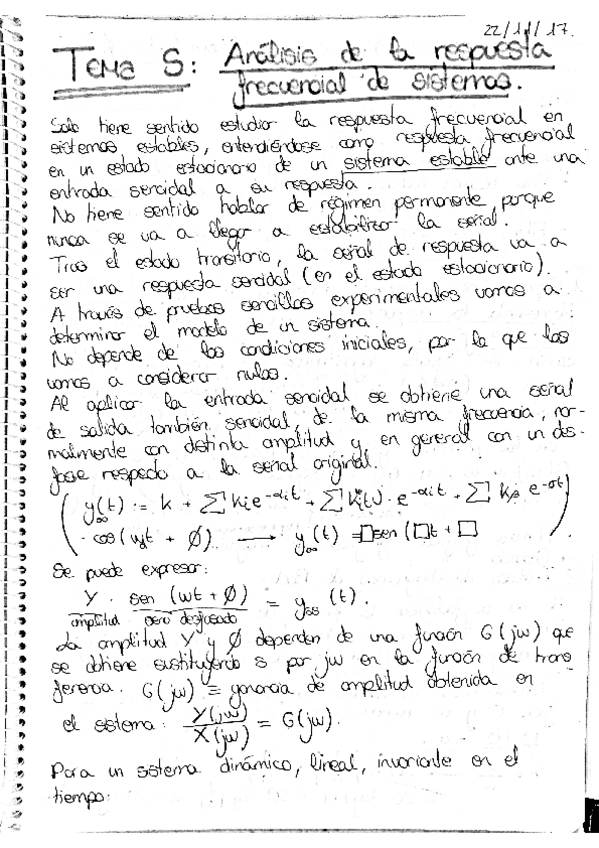 22/11/17.
Tema 5: Análisis de la respuesta
frecuencial de sistemas.
Solo tiene sentido estudiar la respuesta frecuencial en
sistemas estables, entendiéndose como respuesta frecuencial
en un estado estacionario de un sistema estable ante una
entrada senoidal a su respuesta.
No tiene sentido hablar de régimen permanente, porque
nunca se va a llegar a estabilizar la señal.
Tras el estado transitorio, la señal de respuesta va a
ser una respuesta senoidal (en el estado estacionario).
A través de pruebas sencillas experimentales vamos a
determinar el modelo de un sistema.
No depende de las condiciones iniciales, por lo que las
vamos a considerar nulas.
Al aplicar la entrada senoidal se obtiene una señal
de salida también senoidal, de la misma frecuencia, nor-
malmente con distinta amplitud y en general con un des-
fase respecto a la señal original.
y∞(t) = k + ∑ kie^-αit + ∑ · e^-αit + ∑ e^-σt
· cos(wdt + Ø) → y∞(t) = □sen(□t + □
Se puede expresar:
Y · sen (wt + Ø) = yss (t).
amplitud seno desfasado
La amplitud Y y Ø dependen de una función G(jw) que
se obtiene sustituyendo s por jw en la función de trans
ferencia. G(jw) = ganancia de amplitud obtenida en
el sistema: Y(jw)/X(jw) = G(jw).
Para un sistema dinámico, lineal, invariante en el
tiempo: